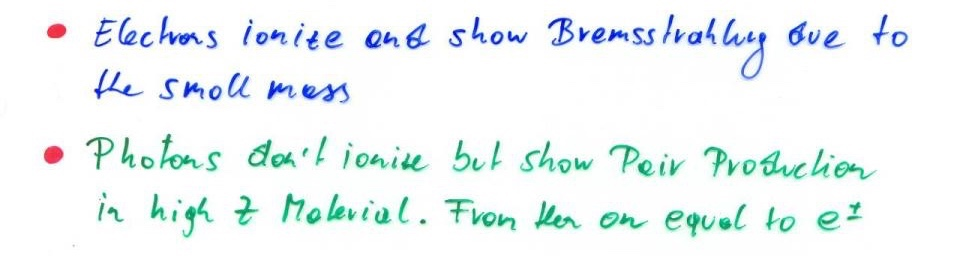 • Electrons ionize and show Bremsstrahlung due to
the small mass
• Photons don't ionise but show Pair Production
in high Z Material. From then on equal to e±